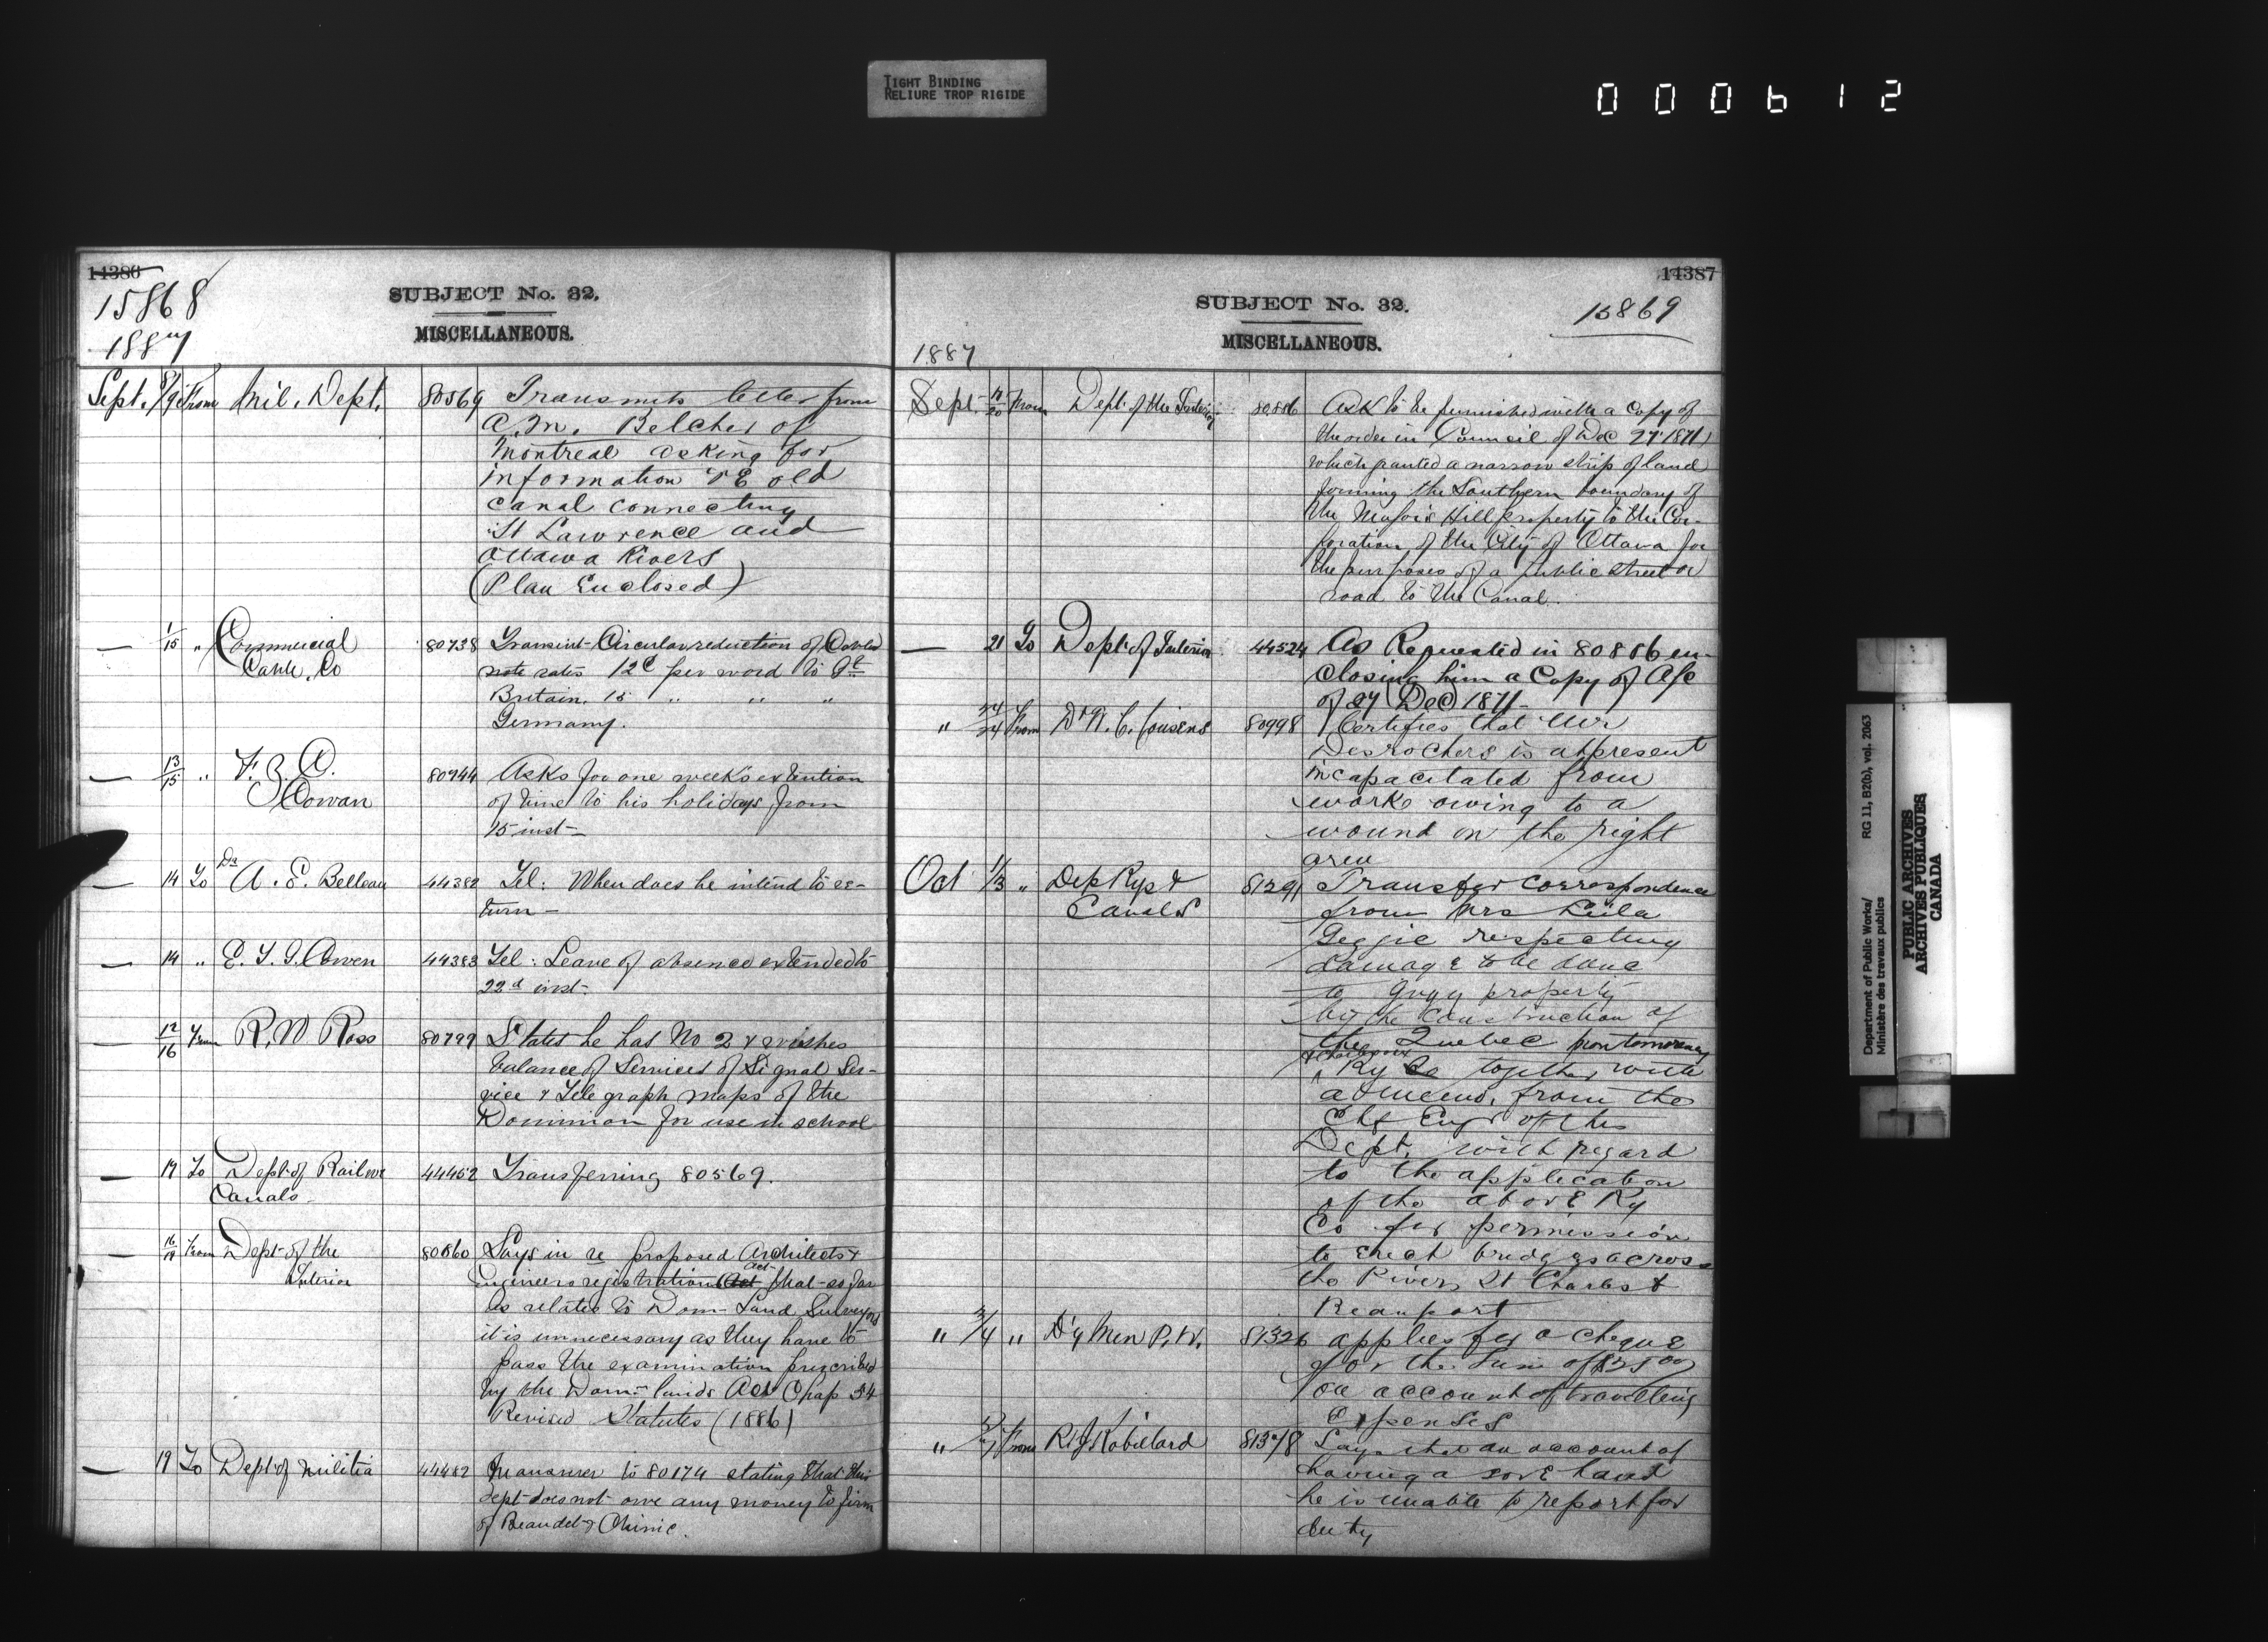 TIGHT BINDING
RELIURE TROP RIGIDE
000612
14386
15868
1887
SUBJECT No. 32.
MISCELLANEOUS.
Sept. 8/9 From Mil. Dept. 80569 Transmits letter from
A. M. Belcher of
Montreal asking for
information re old
canal connecting
St Lawrence and
Ottawa Rivers
(Plan Enclosed)
— 1/15 " Commercial Cable. Co 80738 Transmit Circular reduction of Cable
rates 12c per word to Gt
Britain, 15 " " "
Germany.
— 13/15 " F. B. A. Cowan 80944 Asks for one weeks extention
of time to his holidays from
15 inst—
— 14 To Dr A. E. Belleau 44382 Tel: When does he intend to re-
turn—
— 14 " E. T. G. Cowen 44383 Tel: Leave of absence extended to
22d inst.
— 12/16 From R. W Ross 80799 States he has No 2 & wishes
balance of Services of Signal Ser-
vice & Telegraph maps of the
Dominion for use in school
— 17 To Dept of Railw Canals— 44452 Transferring 80569.
— 16/17 From Dept of the Interior 80860 Says in re proposed Architects &
Engineers registration Act that so far
as relates to Dom— Land Surveyors
it is unnecessary as they have to
pass the examination prescribed
by the Dom— lands Act Chap 54
Revised Statutes (1886)
— 19 To Dept of Militia 44482 In answer to 80174 stating that this
dept does not owe any money to firm
of Beaudet & Chinic.
14387
SUBJECT No. 32.
15869
MISCELLANEOUS.
1887
Sept. 17/20 From Dept. of the Interior 80886 Ask to be furnished with a Copy of
the order in Council of Dec 27 1871
which granted a narrow strip of land
forming the Southern boundary of
the Majors Hill property to the Cor-
poration of the City of Ottawa for
the purposes of a public street or
road to the Canal.
— 21 To Dept. of Interior 44524 As Requested in 80886 en-
closing him a Copy of O/C
of 27 (Dec) 1871—
" 24/24 From Dr W. C. Cousens 80998 Certifies that Mr
Desrochers is at present
incapacitated from
work owing to a
wound on the right
arm
Oct 1/3 " Dep Rys & Canals 81291 Transfer correspondence
from Mrs Leila
Geggie respecting
damage to be done
to Gugy property
by the construction of
the Quebec Montmorency
& Charlevoix
Ry Co together with
a memo, from the
Chf Engr of this
Dept. with regard
to the application
of the above Ry
Co for permission
to erect bridges across
the Rivers St Charles &
Beauport
" 3/4 " D'y Min P. W. 81326 applies for a cheque
for the Sum of $25.00
on account of travelling
Expenses
" From Robillard 81378 Says that on account of
having a sore hand
he is unable to report for
duty
Department of Public Works/
Ministère des travaux publics
RG 11, B2(b), vol. 2063
PUBLIC ARCHIVES
ARCHIVES PUBLIQUES
CANADA